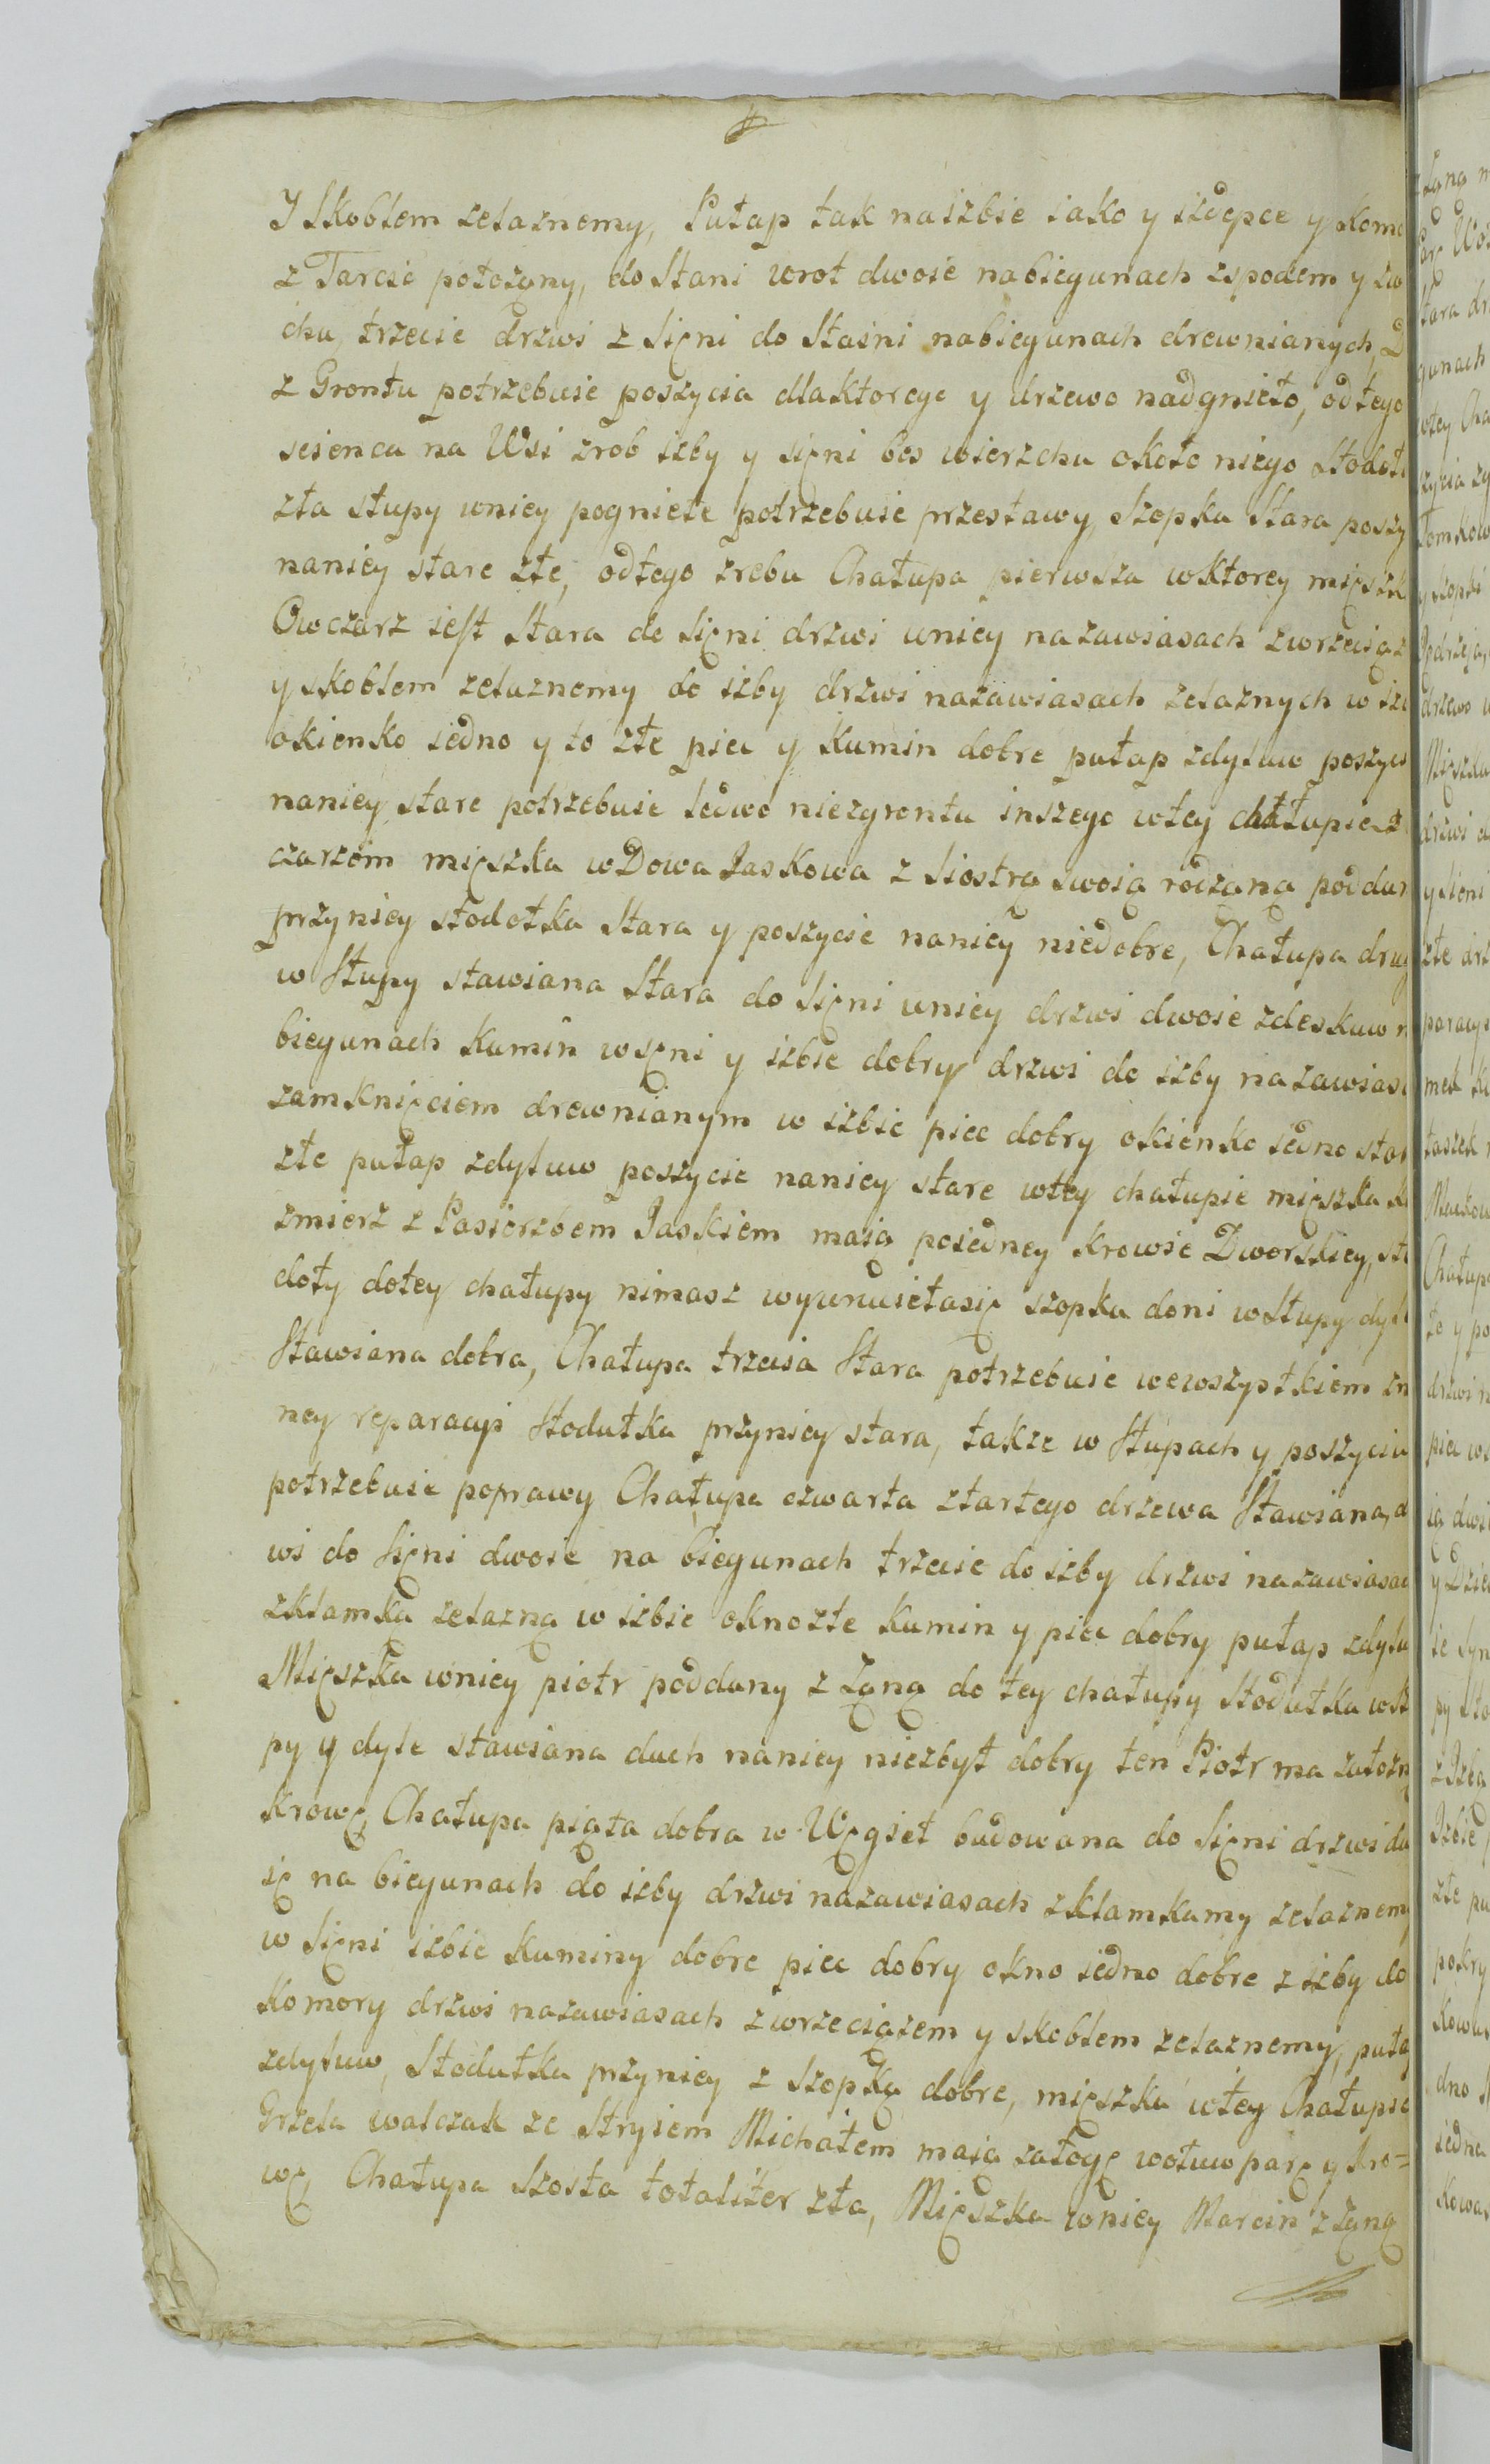 Y skoblem zelaznemy, Pułap tak naizbie iako y izdepce y komo
z Tarcic położąny, do Stani wrot dwoie nabiegunach zspodem y zw
chu, trzecie drzwi z Sięni do Staini nabiegunach drewnianych, D
z Grontu potrzebuie poszycia dlaktorego y drzewo nadgnieło, odtego
sesienca na Wsi zrob izby y sięni bes wierzchu około niego Stodoł
zła słupy wniey pogniełe potrzebuie przestawy, Szopka Stara poszy
naniey stare złe, odtego zrebu Chałupa pierwsza wktorey mięszk
Owczarz iest Stara do Sięni drzwi wniey nazawiasach zwrzeciąz
y skoblem zelaznemy do izby drzwi nazawiasach zelaznych w iz
okienko iedno y to złe piec y Kumin dobre pułap zdyluw poszyci
naniey stare potrzebuie ledwo niezgrontu inszego wtey chałupie z
czarzem mięszka wDowa Jaskowa z Siostrą swoią rodząną poddan
przyniey stodołka Stara y poszycie naniey niedobre, Chałupa drug
w Słupy stawiana Stara do Sięni wniey drzwi dwoie zdeskuw n
biegunach Kumin wsięni y izbie dobry drzwi do izby nazawias
zamknięciem drewnianym w izbie piec dobry okienko iedno star
złe pułap zdyluw poszycie naniey stare wtey chałupie mięszka Ka
zmierz z Pasierzbem Jaskiem maią poiedney Krowie Dworskiey, sto
doły dotey chałupy nimasz wywruciełasię szopka doni wSłupy dyl
Stawiana dobra, Chałupa trzecia Stara potrzebuie wewszystkiem zn
ney reparacyi Stodułka przyniey stara, takze w Słupach y poszyciu
potrzebuie poprawy Chałupa czwarta ztartego drzewa Stawiana, d
wi do Sięni dwoie na biegunach trzecie do izby drzwi nazawiasac
zklamką zelazną w izbie oknozłe Kumin y piec dobry pułap zdylu
Mięszka wniey piotr poddany z Zoną do tey chałupy Stodułka wsł
py y dyle stawiana dach naniey niezbyt dobry ten Piotr ma załozn
Krowę, Chałupa piąta dobra w Węgieł budowana do Sięni drzwi dw
ię na biegunach do izby drzwi nazawiasach zklamkamy zelaznemy
w Sięni izbie Kuminy dobre piec dobry okno iedno dobre z izby do
Komory drzwi nazawiasach zwrzeciązem y skoblem zelaznemy, puła
zdyluw, Stodułka przyniey z Szopką dobre, mięszka wtey Chałupie
Grzela walczak ze Stryiem Michałem maią załogę wołuw parę y kro=
wę, Chałupa Szosta totaliter zła, Mięszka wniey Marcin z Zoną